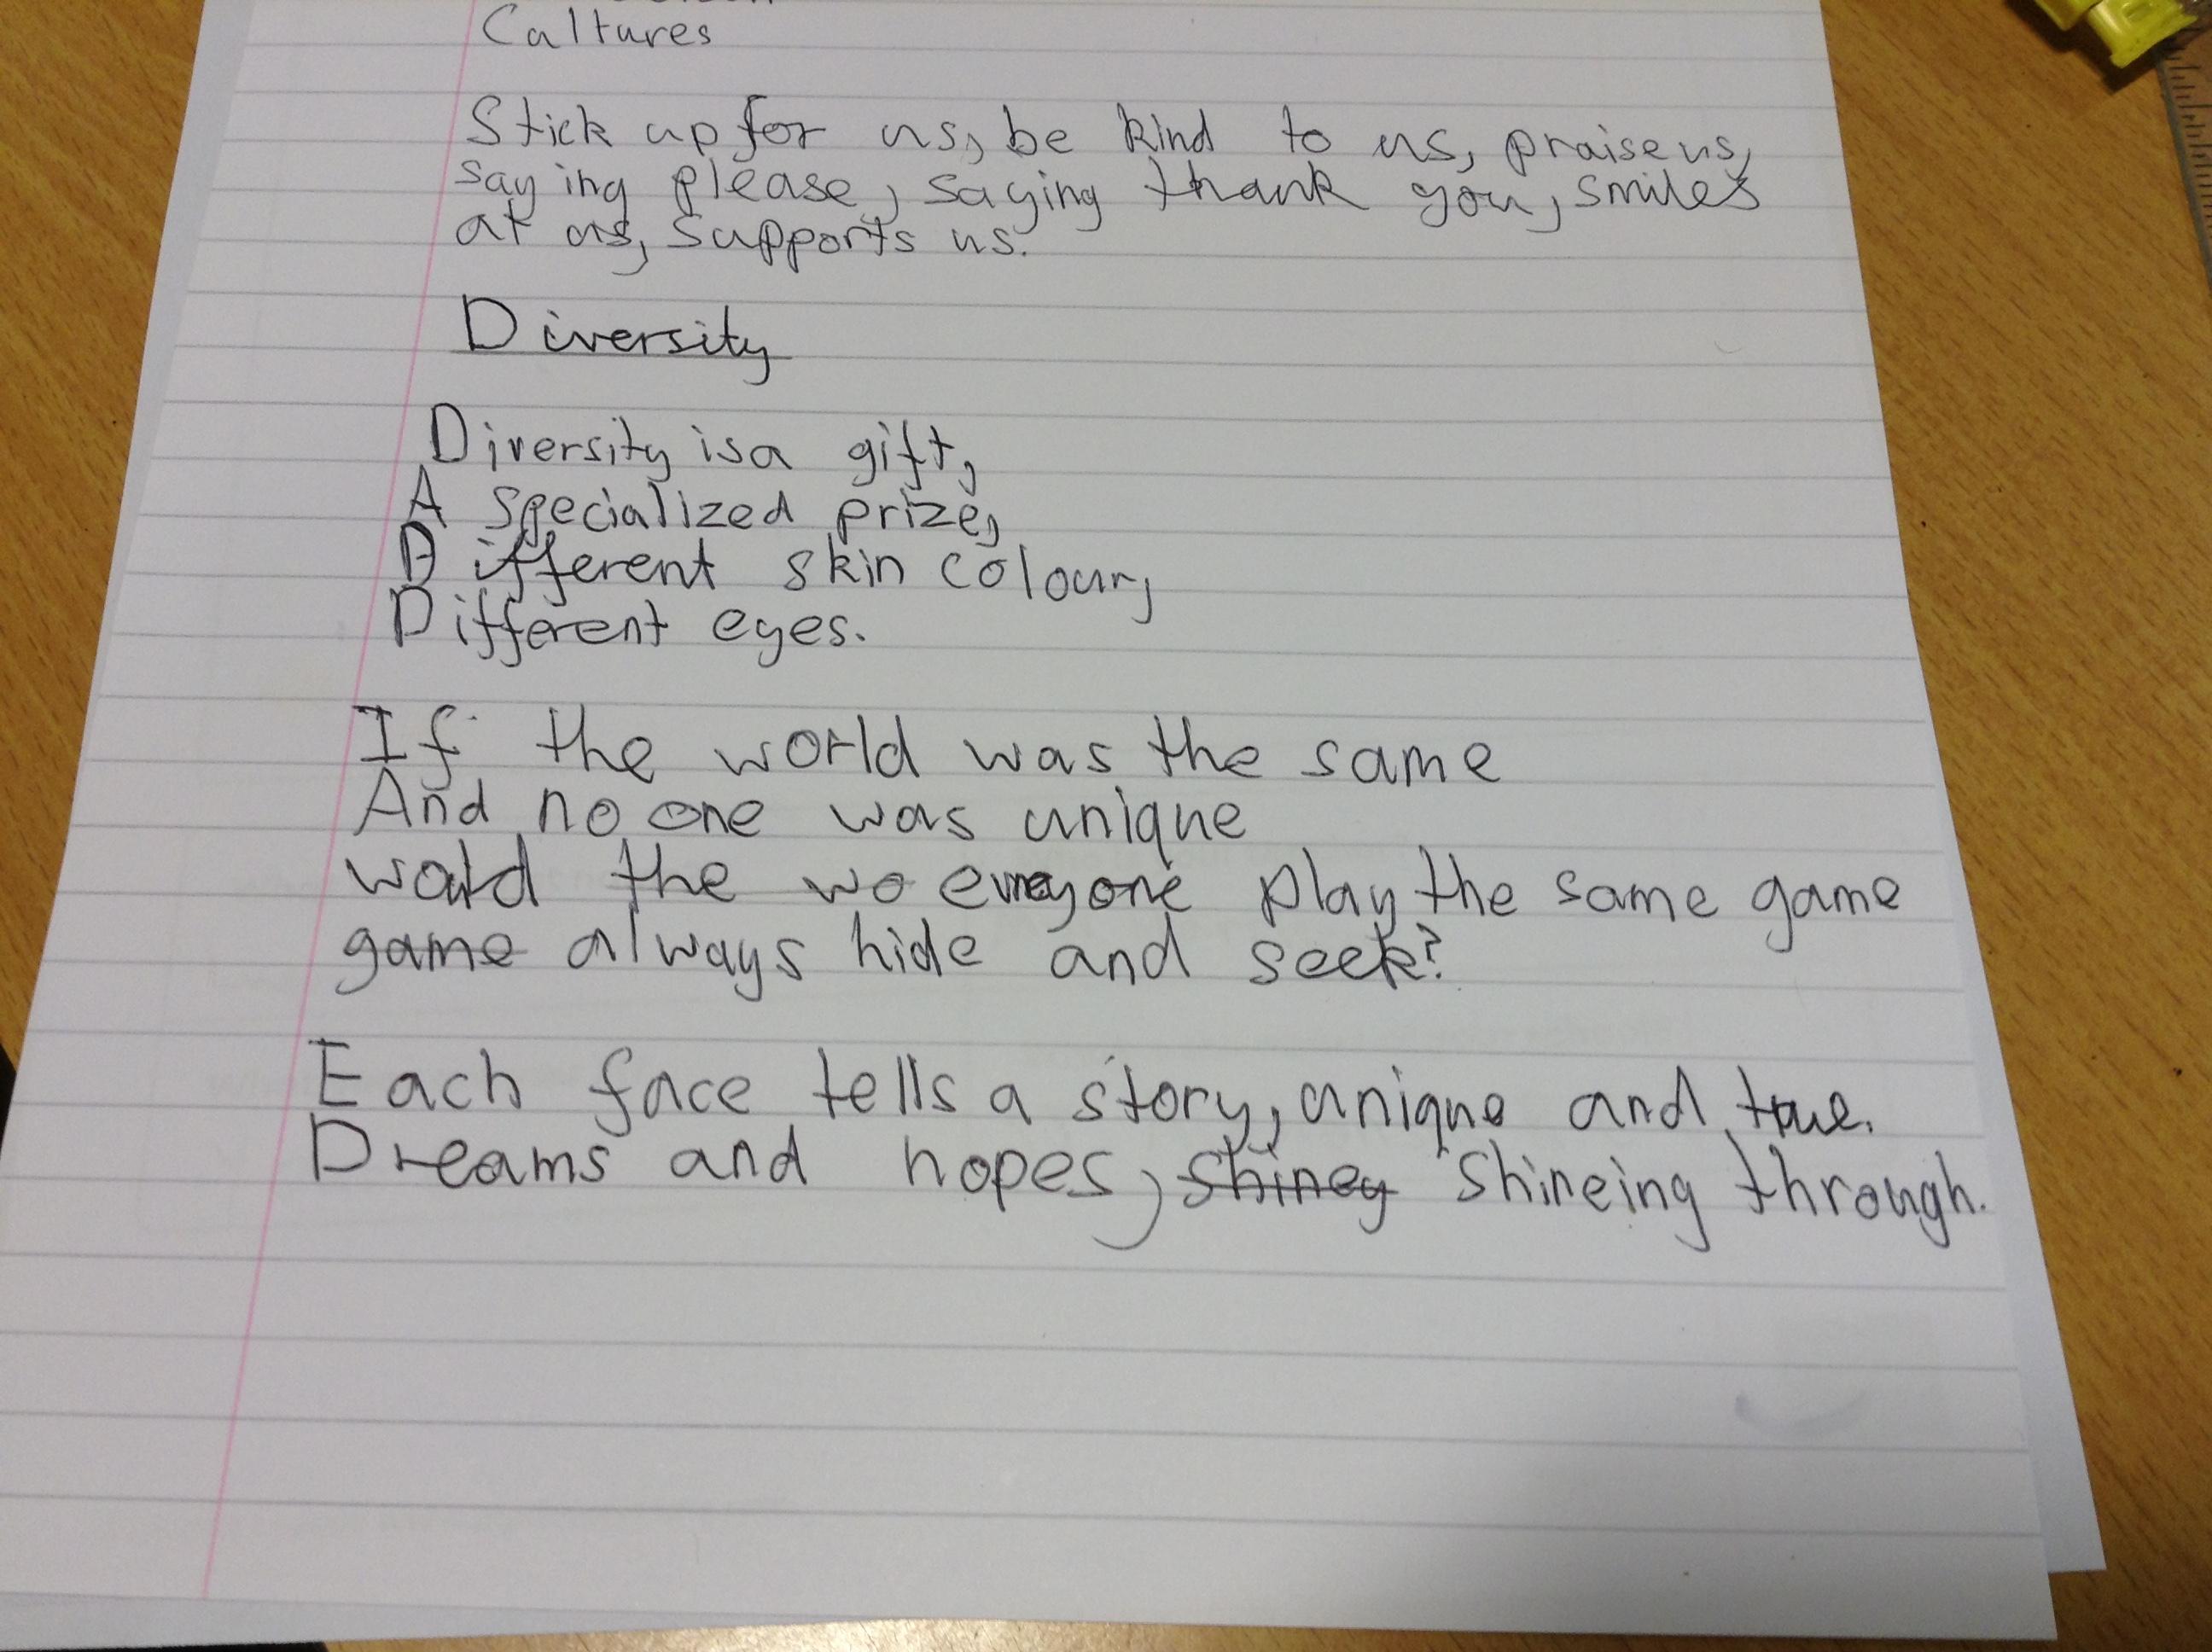 Caltures
Stick up for us, be kind to us, praise us,
saying please, saying thank you, smiles
at us, supports us.
Diversity
Diversity is a gift,
A specialized prize,
Different skin colour,
Different eyes.
If the world was the same
And no one was unique
would the wo everyone play the same game
game always hide and seek?
Each face tells a story, unique and true.
Dreams and hopes, shiney shineing through.